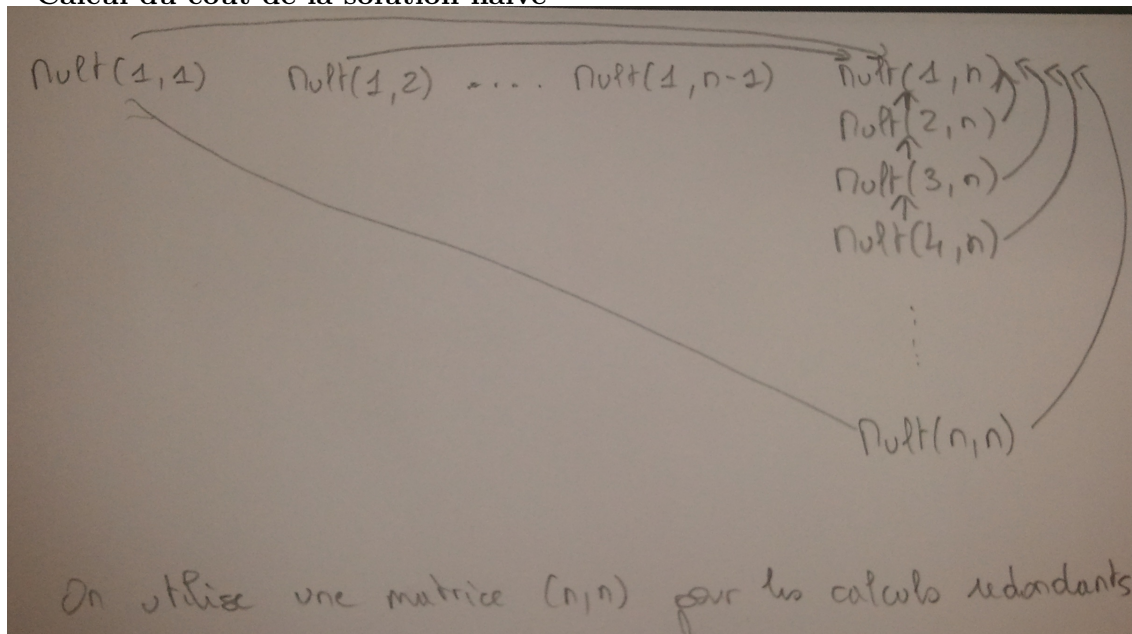 Calcul du coût de la solution naïve
Mult(1,1) Mult(1,2) .... Mult(1,n-1) Mult(1,n)
Mult(2,n)
Mult(3,n)
Mult(4,n)
Mult(n,n)
On utilise une matrice (n,n) pour les calculs redondants